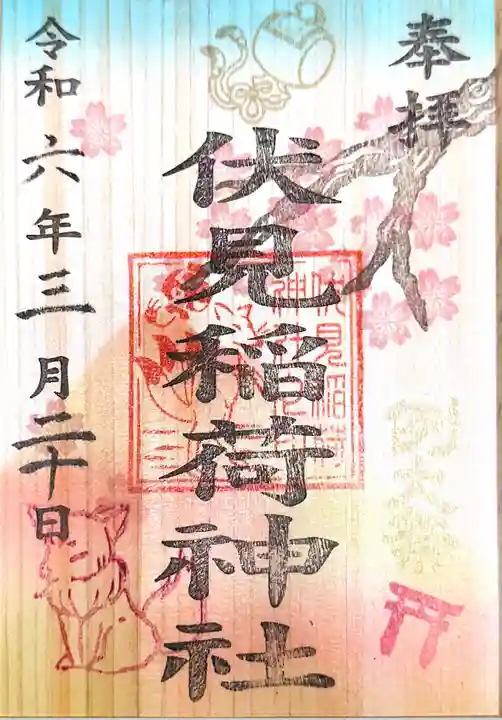 奉拝
伏見稲荷神社
伏見稲荷
令和六年三月二十日